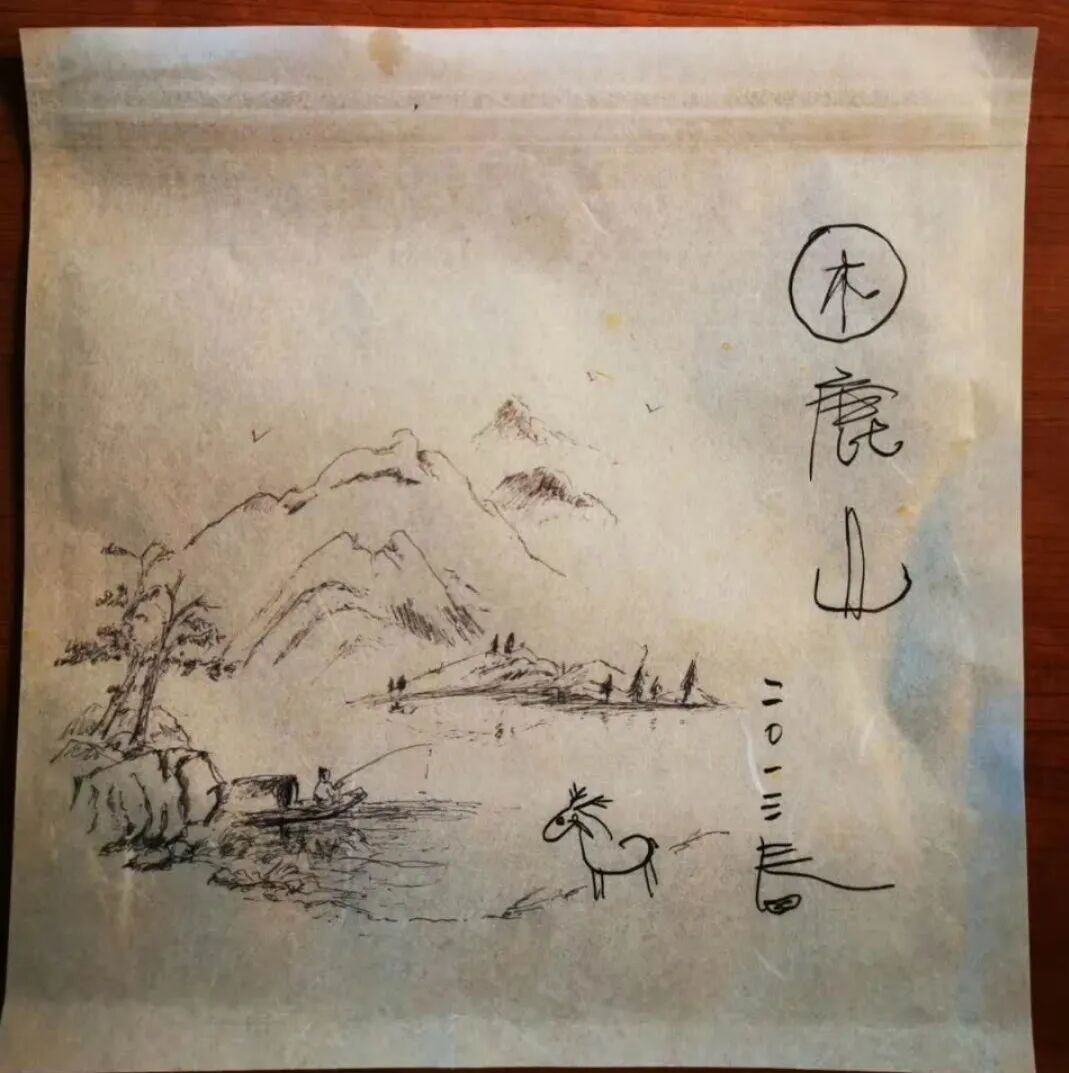 木鹿山
二〇一三春